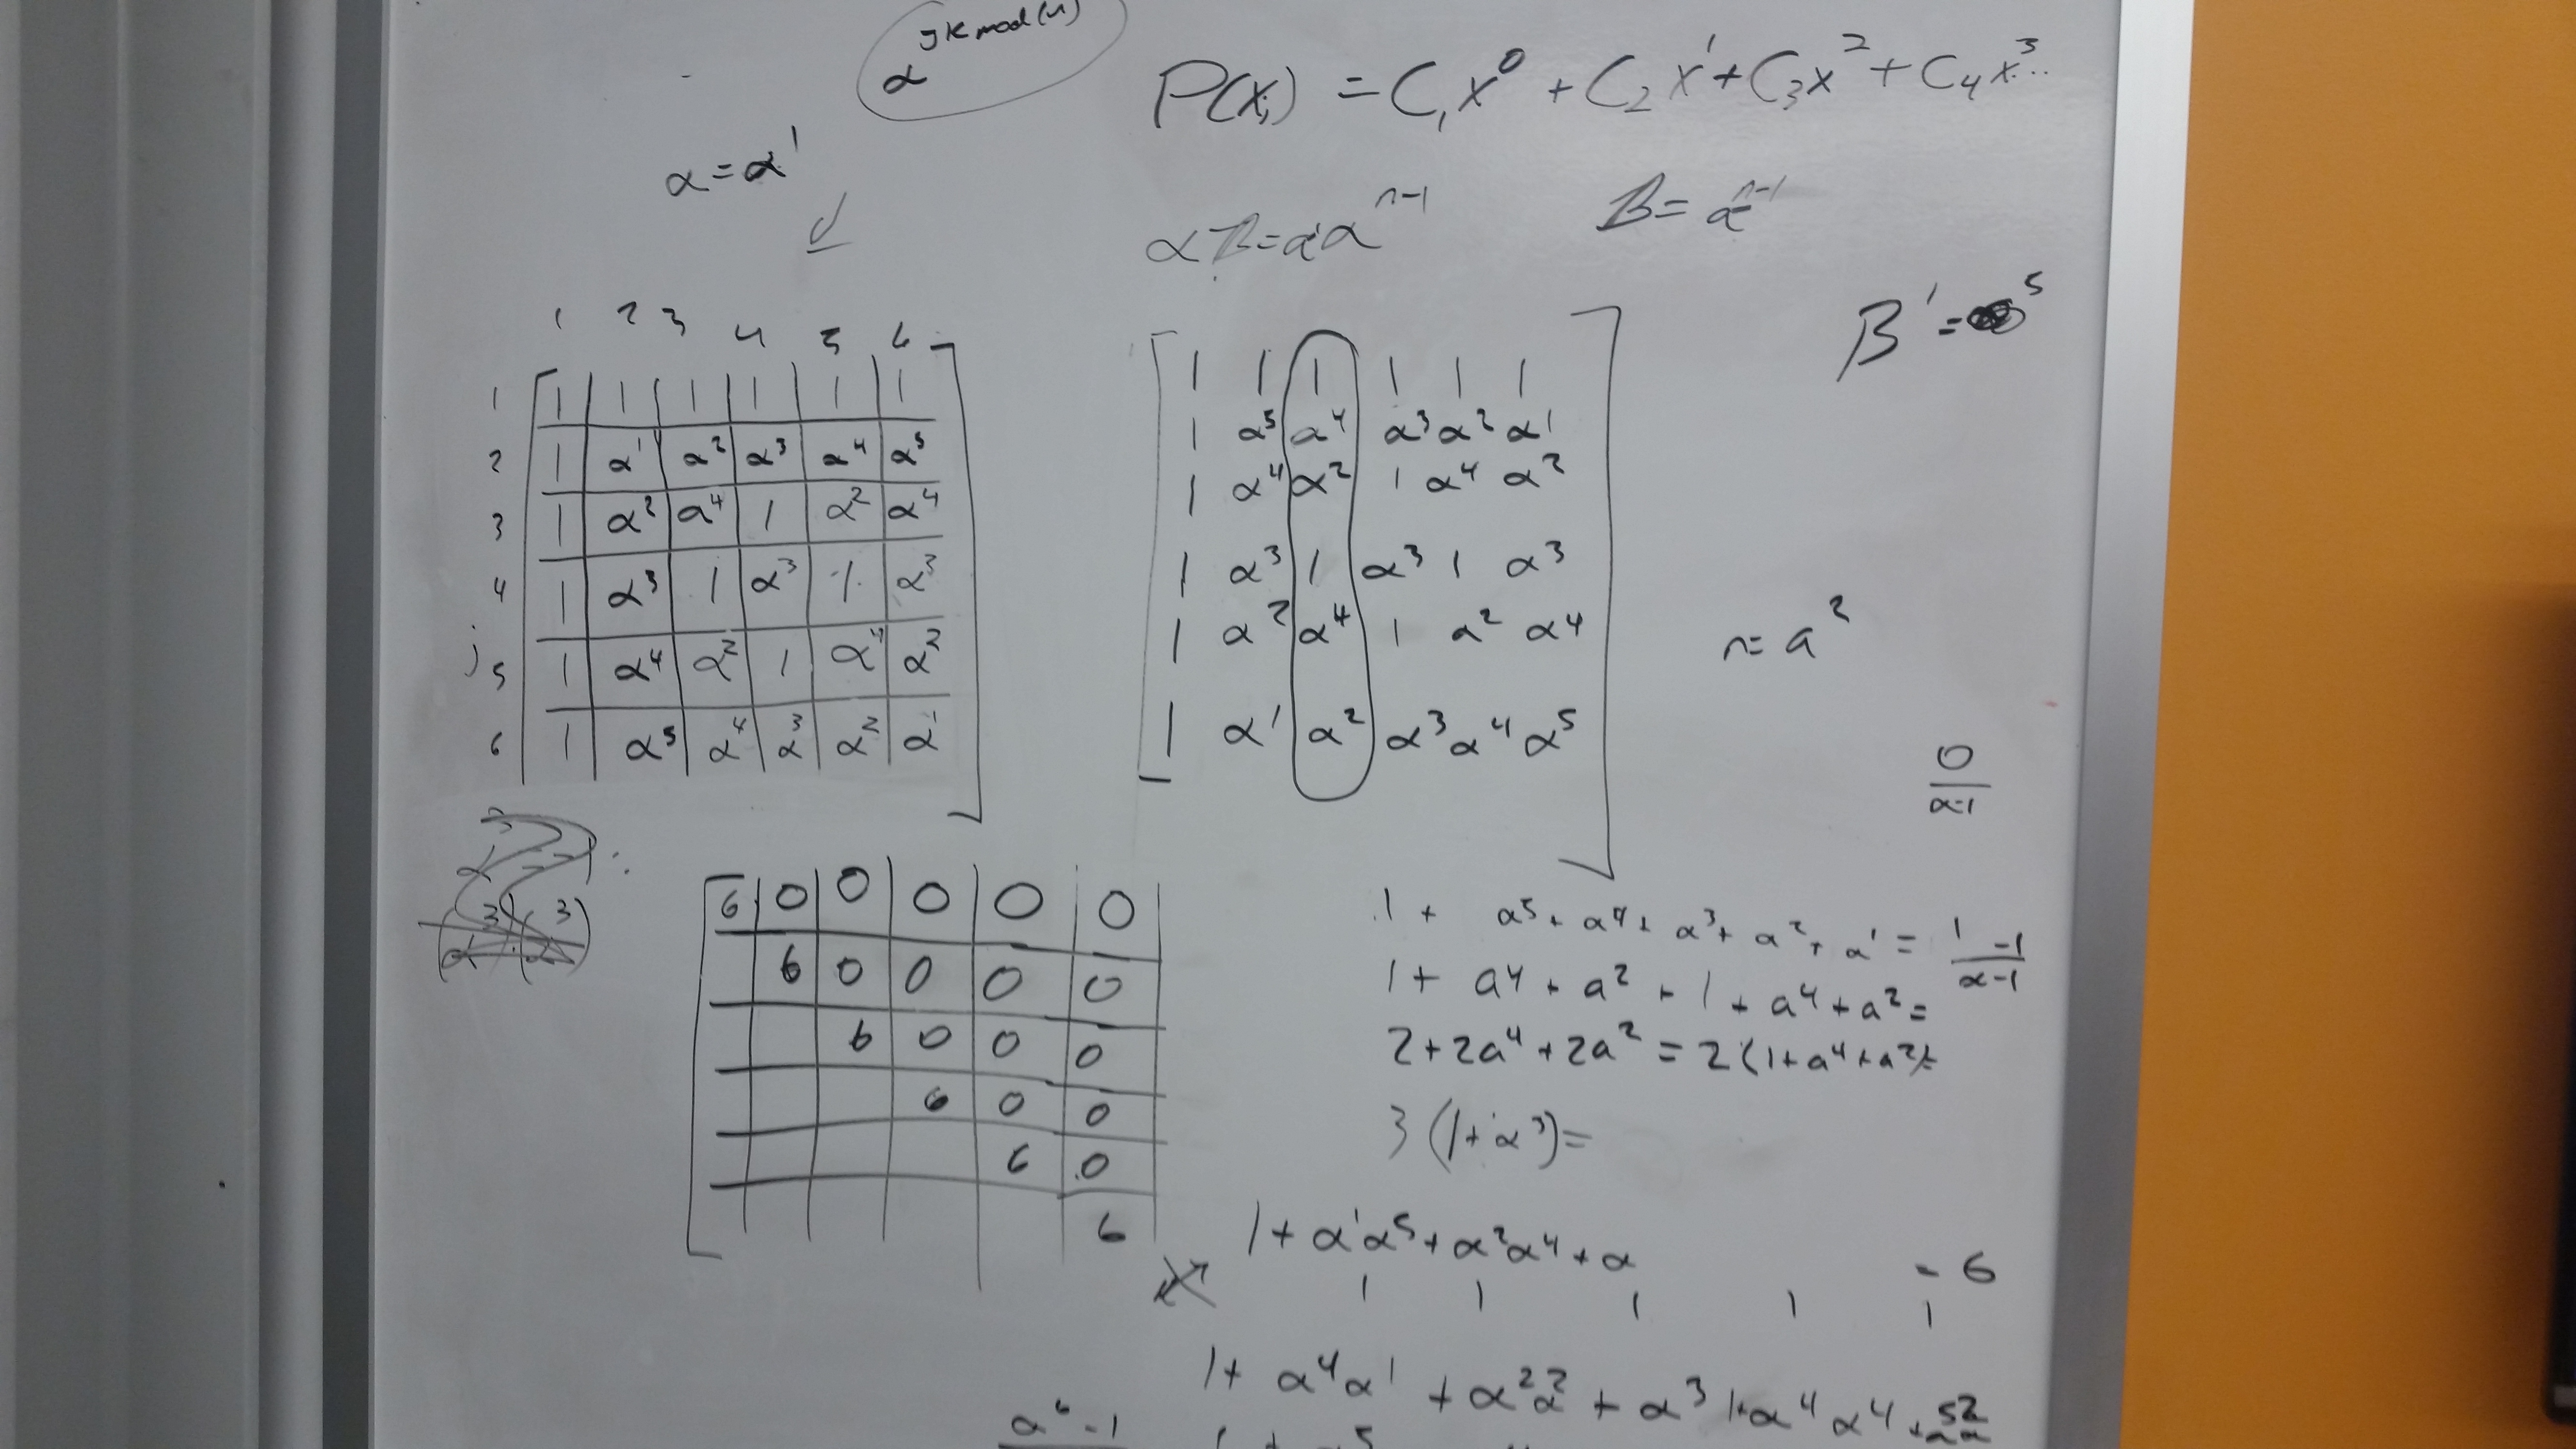 α^{jk mod(n)}
P(x_i) = C_1 x^0 + C_2 x^1 + C_3 x^2 + C_4 x^3 ...
α = α^1
αB = α^1 α^{n-1}
B = α^{n-1}
B^1 = ^5
1 2 3 4 5 6
1 1 1 1 1 1 1
2 1 α^1 α^2 α^3 α^4 α^5
3 1 α^2 α^4 1 α^2 α^4
4 1 α^3 1 α^3 1 α^3
j 5 1 α^4 α^2 1 α^4 α^2
6 1 α^5 α^4 α^3 α^2 α^1
1 1 1 1 1 1
1 α^5 α^4 α^3 α^2 α^1
1 α^4 α^2 1 α^4 α^2
1 α^3 1 α^3 1 α^3
1 α^2 α^4 1 α^2 α^4
1 α^1 α^2 α^3 α^4 α^5
n = a^2
0/(α-1)
6 0 0 0 0 0
6 0 0 0 0
6 0 0 0
6 0 0
6 0
6
1 + α^5 + α^4 + α^3 + α^2 + α^1 = (1-1)/(α-1)
1 + α^4 + α^2 + 1 + α^4 + α^2 =
2 + 2α^4 + 2α^2 = 2(1 + α^4 + α^2) =
3(1 + α^3) =
1 + α^1 α^5 + α^2 α^4 + α = 6
1 1 1 1 1
1 + α^4 α^1 + α^2 α^2 + α^3 1 + α^4 α^4 + α^5 α^2
α^6 - 1